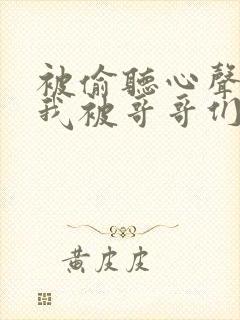 被偷聽心聲
我被哥哥们
黃皮皮